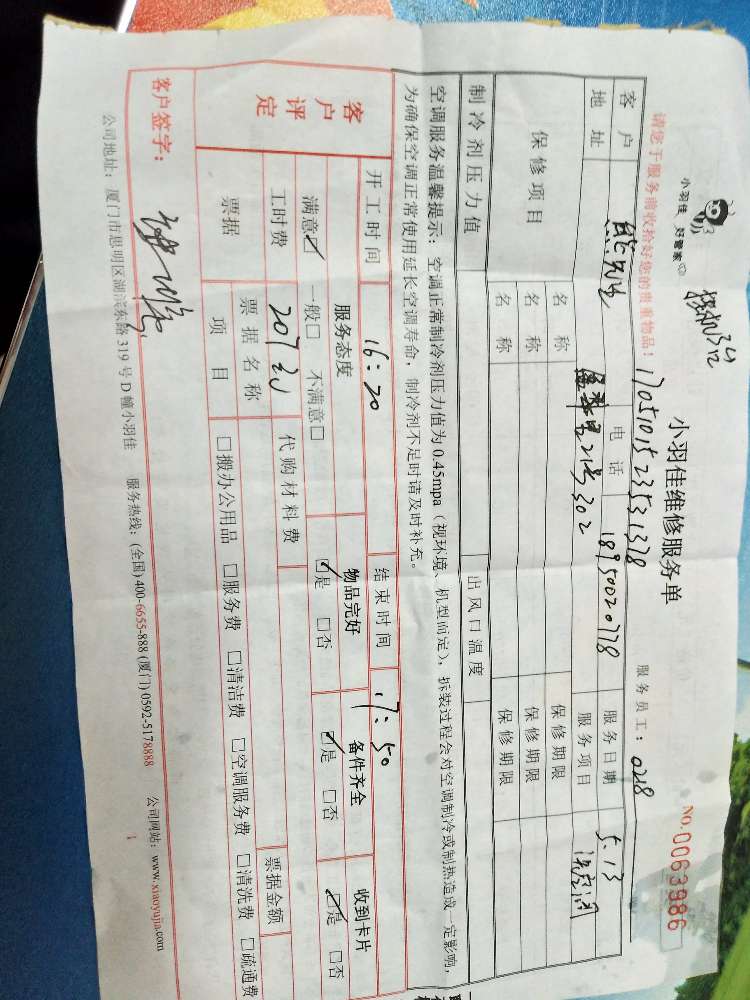 小羽佳 好管家
小羽佳维修服务单
NO.0063986
请您于服务前收拾好您的贵重物品！ 1705101523531378 服务员工：0218
客户 熊先生 电话 18950020778 服务日期 5.13
地址 21号302 服务项目
保修项目 名称 保修期限
名称 保修期限
名称 保修期限
制冷剂压力值 出风口温度
空调服务温馨提示：空调正常制冷剂压力值为0.45mpa（视环境、机型而定），拆装过程会对空调制冷或制热造成一定影响，
为确保空调正常使用延长空调寿命，制冷剂不足时请及时补充。
客户评定 开工时间 16：20 结束时间 17：50
服务态度 物品完好 备件齐全 收到卡片
满意☑ 一般□ 不满意□ ☑是 □否 ☑是 □否 ☑是 □否
工时费 207元 代购材料费
票据 票据名称 票据金额
项目 □搬办公用品 □服务费 □清洁费 □空调服务费 □清洗费 □疏通费
客户签字：
公司地址：厦门市思明区湖滨东路319号D幢小羽佳 服务热线：(全国)400-6655-888 (厦门)0592-5178888 公司网站：www.xiaoyujia.com
1